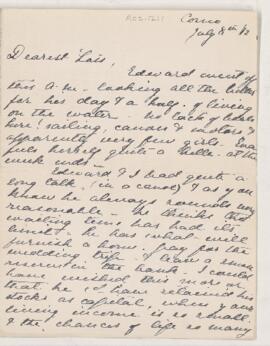 Como
July 8th 12
Dearest Lois,
Edward went off
this a.m. looking all the better
for his day & a half of living
on the water. No lack of boats
here! sailing, canoes & motors &
apparently very few girls. Eva
finds herself quite a belle at the
week ends.
Edward & I had quite a
long talk, (in a canoe) & as you
know he always sounds very
reasonable. He thinks that
waiting time has had its
limit. He has what will
furnish a home, pay for the
wedding trip & leave a small
reserve in the bank. I could
have wished this more or
that he have retained his
stocks as capital, when your
living income is so small
& the chances of life so many